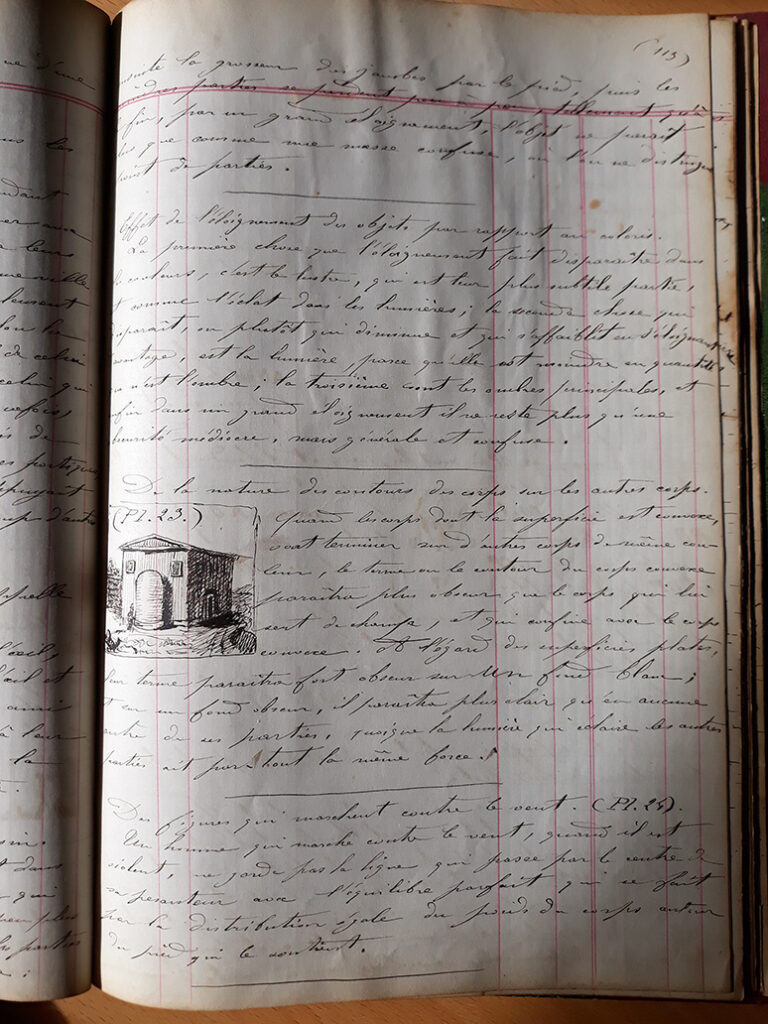 ne d'une
us les
ndant
leurs
une ville
de celui
celui qui
tefois,
es portiques
l'œil et
à leur
la
(113)
ensuite la grosseur des jambes par le pied, puis les
moindres parties se perdent peu à peu, tellement qu'à
la fin, par un grand éloignement, l'objet ne paraît
plus que comme une masse confuse, où l'on ne distingue
point de parties.
Effet de l'éloignement des objets par rapport au coloris.
La première chose que l'éloignement fait disparaître dans
les couleurs, c'est le lustre, qui est leur plus subtile partie,
et comme l'éclat dans les lumières ; la seconde chose qui
disparaît, ou plutôt qui diminue et qui s'affaiblit en s'éloignant
davantage, est la lumière, parce qu'elle est moindre en quantité
que n'est l'ombre ; la troisième sont les ombres principales, et
enfin dans un grand éloignement il ne reste plus qu'une
obscurité médiocre, mais générale et confuse.
De la nature des contours des corps sur les autres corps.
(Pl. 23.)
Quand les corps dont la superficie est convexe,
vont terminer sur d'autres corps de même cou-
leur, le terme ou le contour du corps convexe
paraîtra plus obscur que le corps qui lui
sert de champ, et qui confine avec le corps
convexe. A l'égard des superficies plates,
leur terme paraîtra fort obscur sur un fond blanc ;
et sur un fond obscur, il paraîtra plus clair qu'en aucune
autre de ses parties, quoique la lumière qui éclaire les autres
parties ait par-tout la même force.
Des figures qui marchent contre le vent. (Pl. 24).
Un homme qui marche contre le vent, quand il est
violent, ne garde pas la ligne qui passe par le centre de
sa pesanteur avec l'équilibre parfait qui se fait
par la distribution égale du poids du corps autour
du pied qui le soutient.